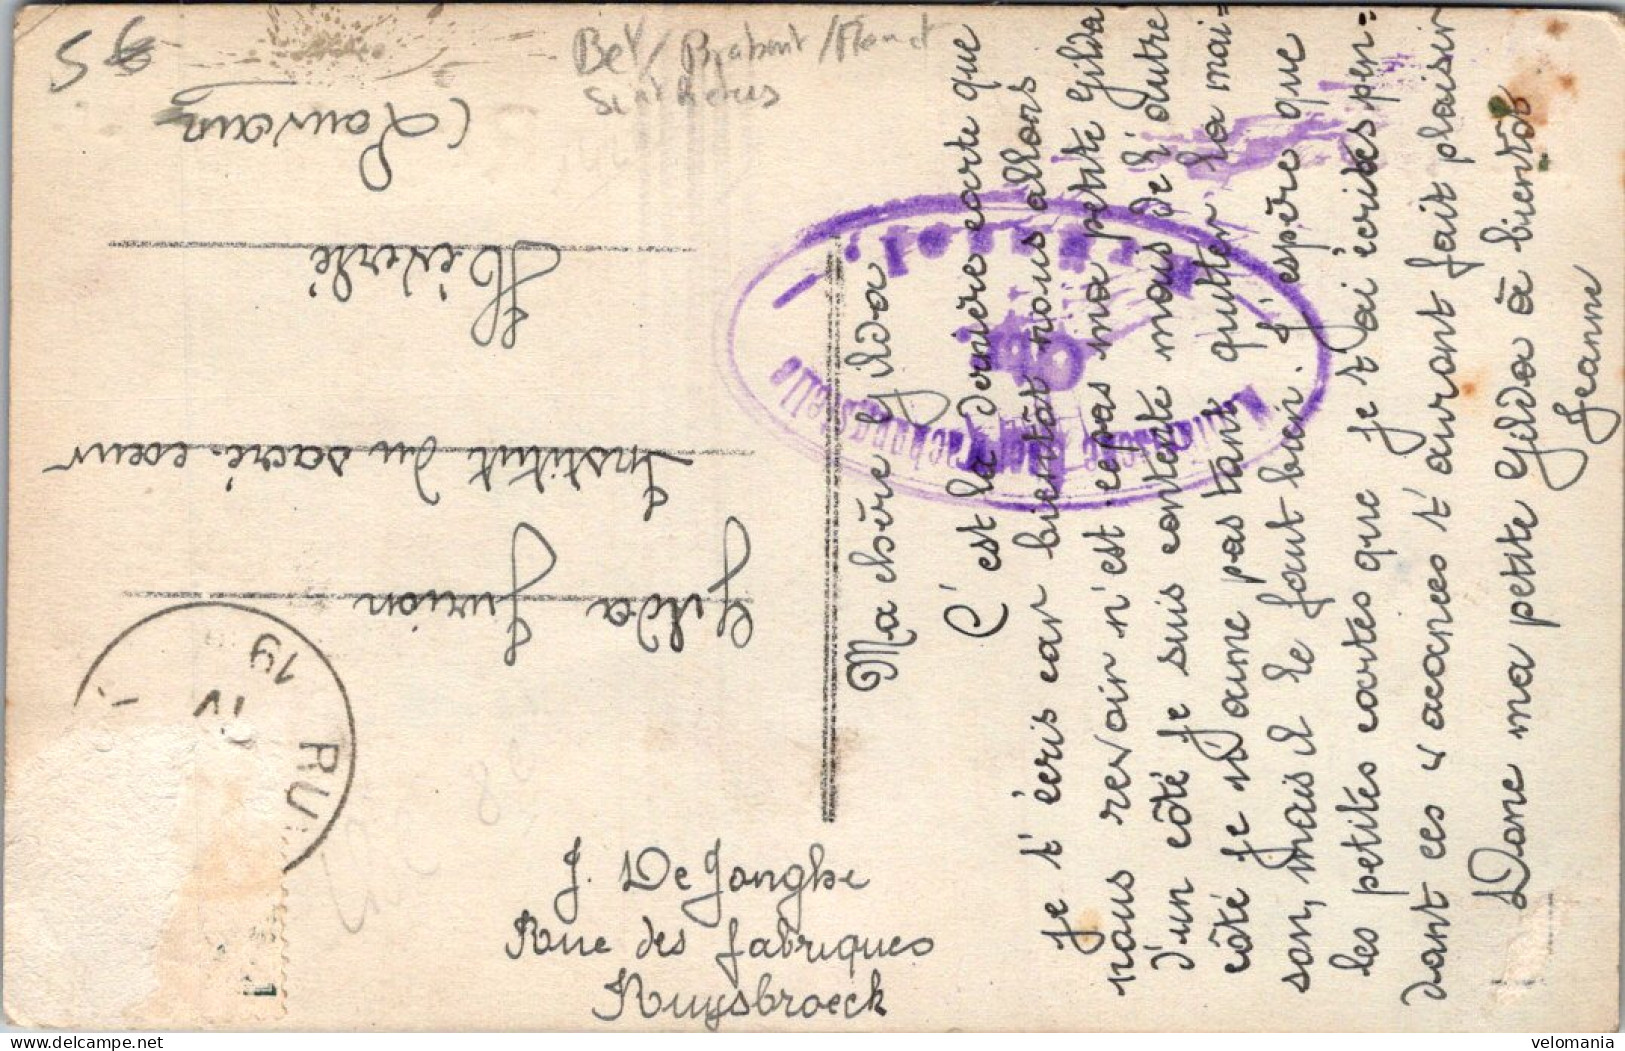 Ma chère Gilda
C'est la dernière carte que
je t'écris car bientôt nous allons
nous revoir n'est ce pas ma petite Gilda
d'un côté je suis contente mais de l'autre
côté je n'aime pas tant quitter la mai=
son, mais il le faut bien. J'espère que
les petites cartes que je t'ai écrites pen=
dant ces vacances t'auront fait plaisir
Donc ma petite Gilda à bientôt
Jeanne
J. De Jonghe
Rue des fabriques
Ruysbroeck
Gilda Jurion
Institut du sacré-coeur
Héverlé
(Louvain
RU
IV
19
Militärische
Überwachungsstelle
Bel/Brabant/
95
velomania